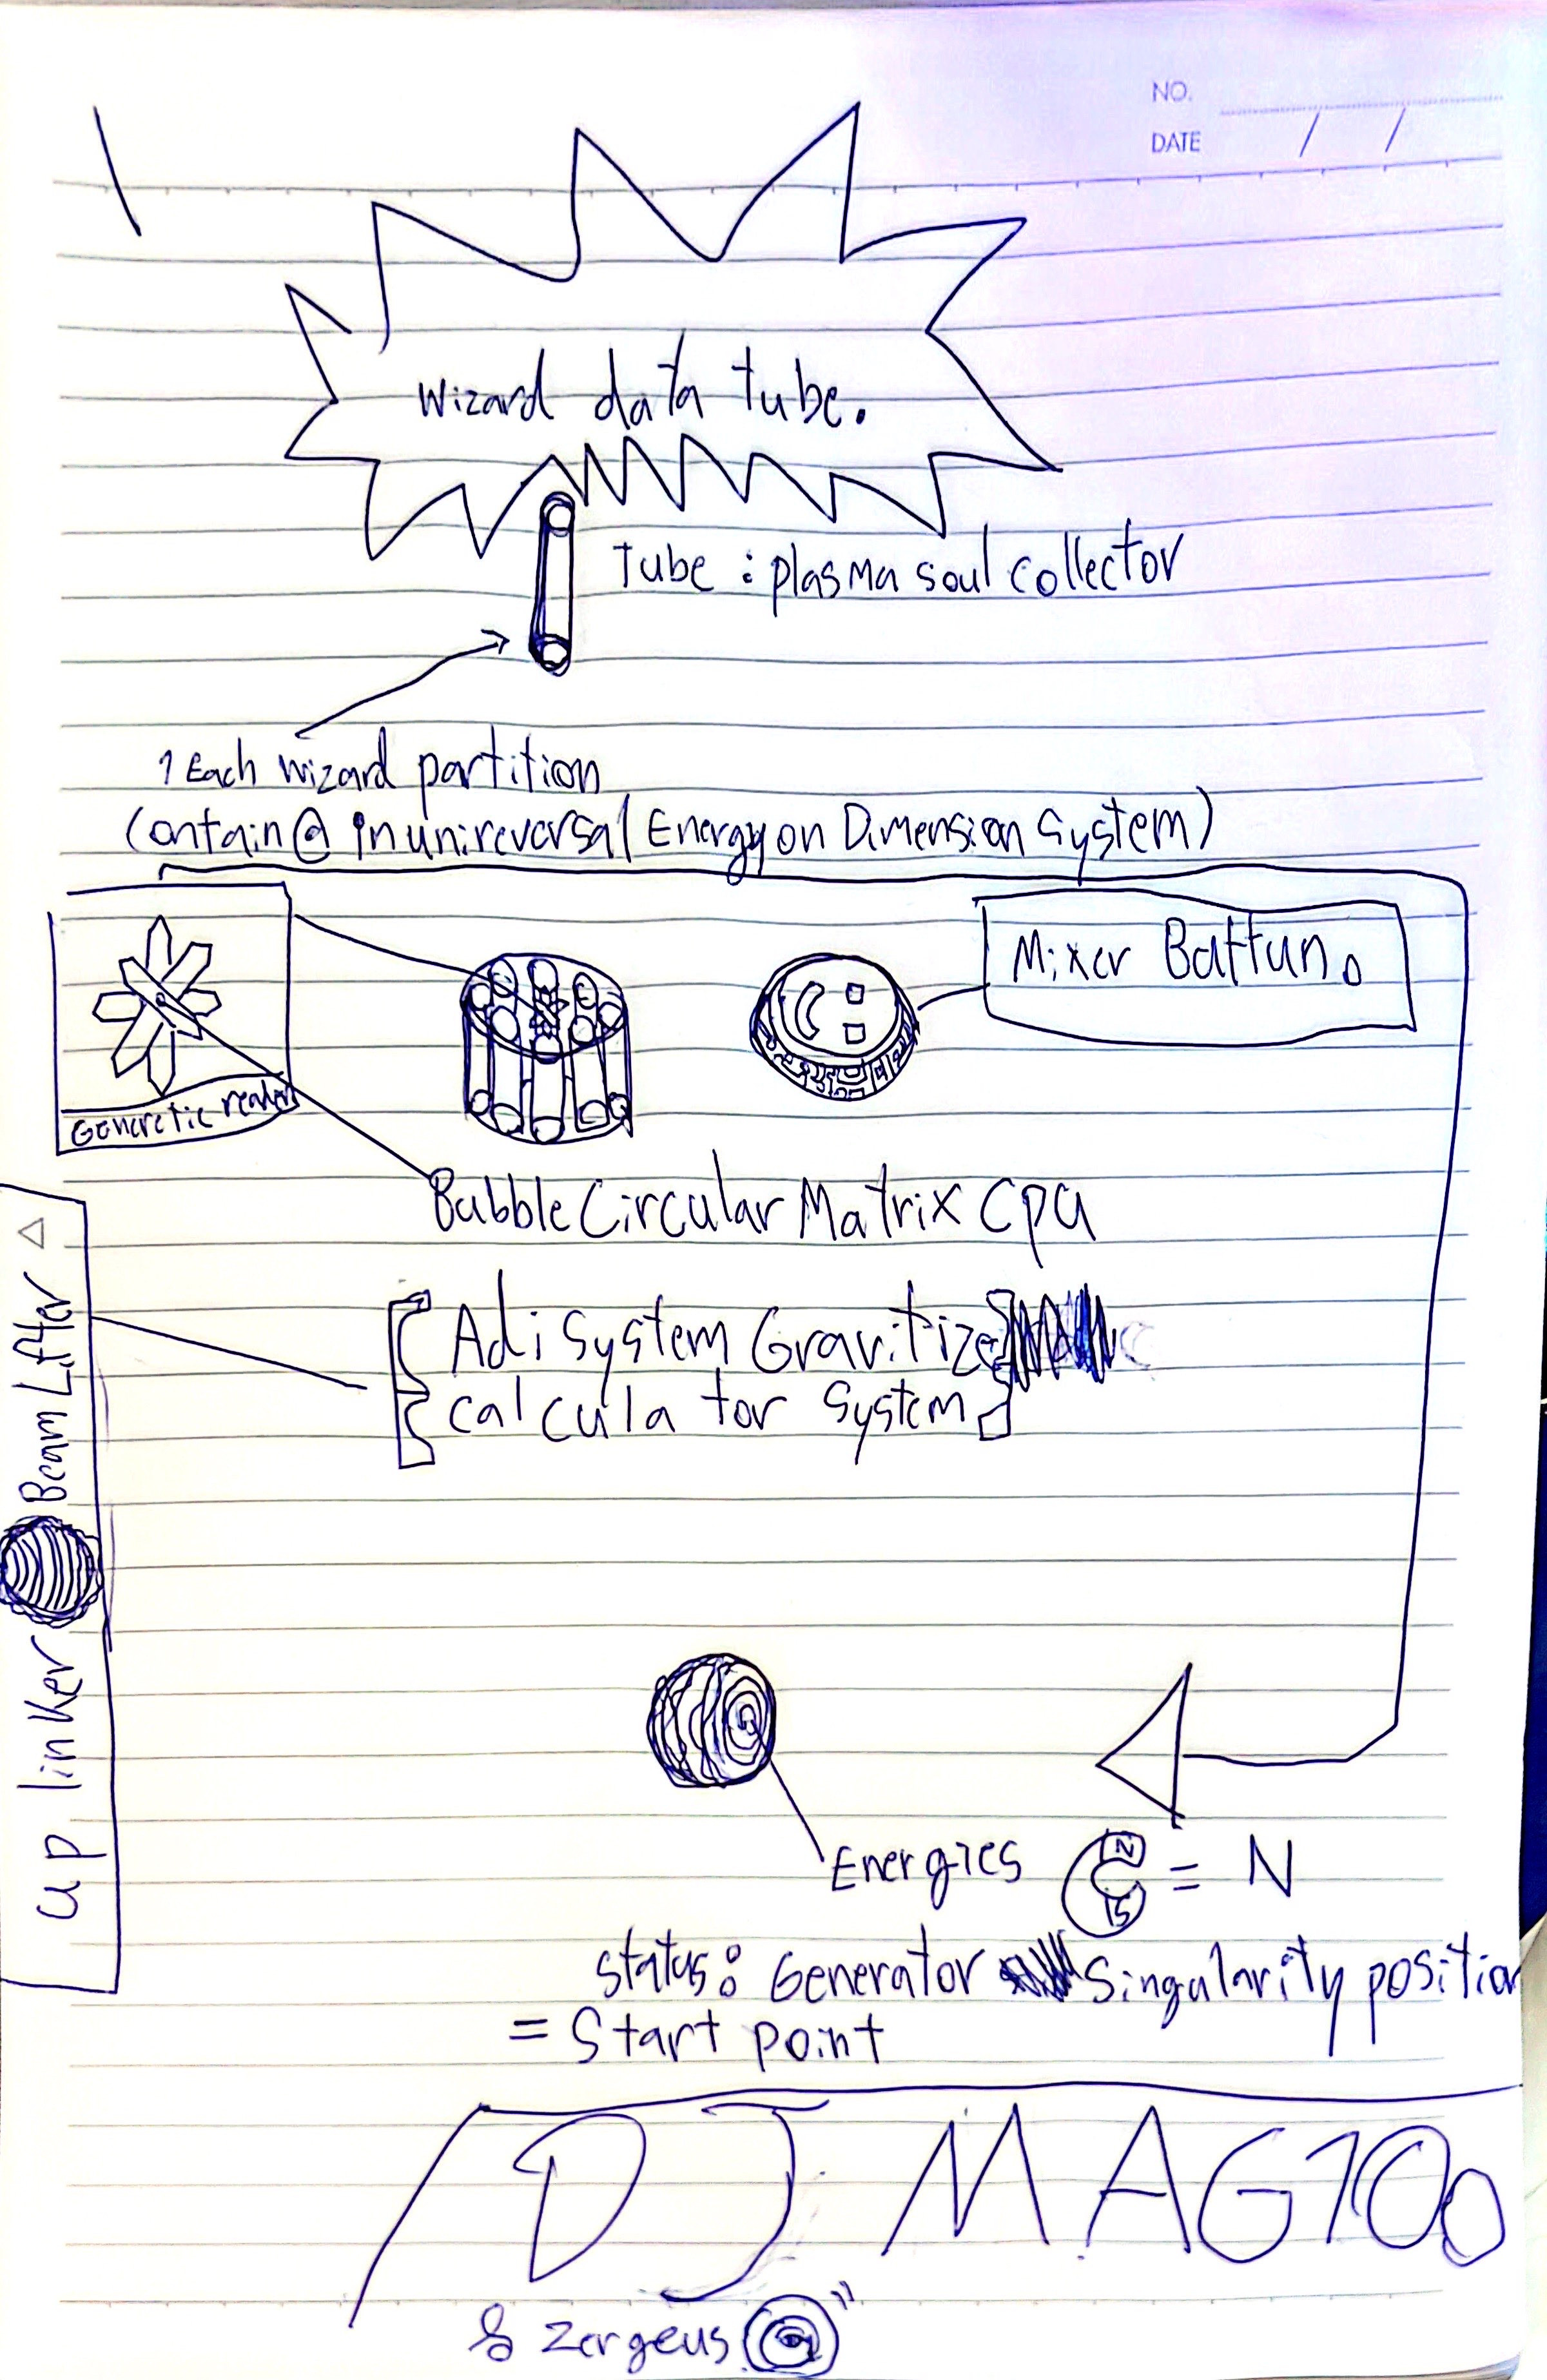 NO.
DATE / /
Wizard data tube.
Tube : plasma soul collector
1 Each wizard partition
(contain@ in unireversal Energy on Dimension System)
Mixer Battun.
Generetic reader
Bubble Circular Matrix Cpu
[Adi System Gravitize
calculator system]
up linker Beam Lifter
Energies N S = N
status: Generator Singularity position
= Start point
DJ MAG100
& Zergeus @"